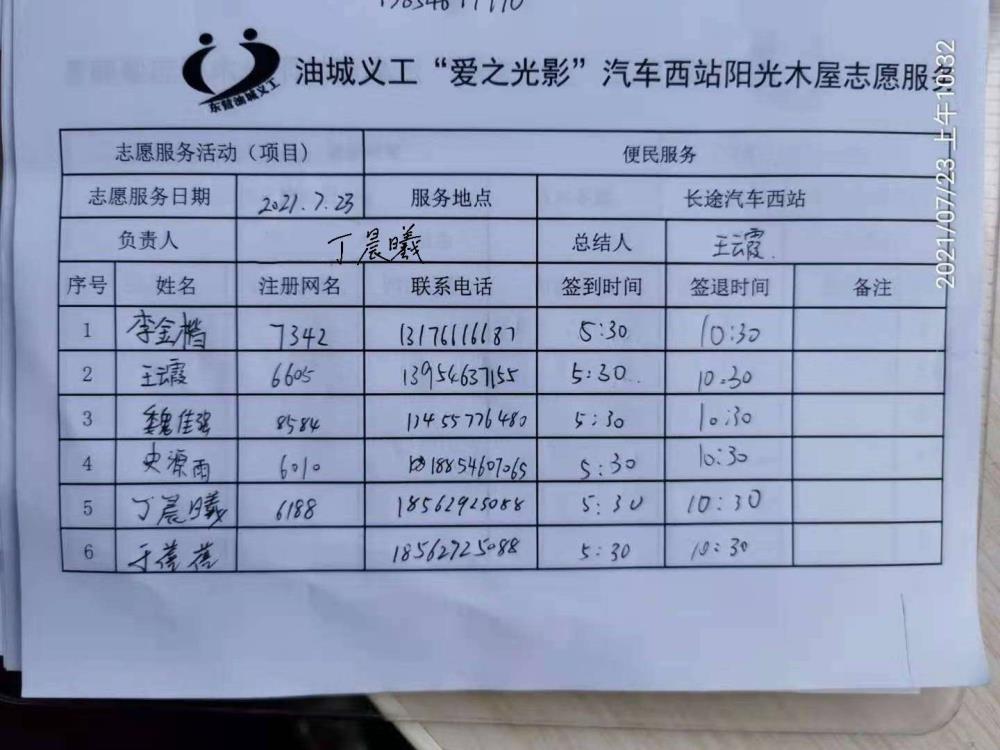 东营油城义工
油城义工“爱之光影”汽车西站阳光木屋志愿服务
志愿服务活动（项目） 便民服务
志愿服务日期 2021.7.23 服务地点 长途汽车西站
负责人 丁晨曦 总结人 王云霞.
序号 姓名 注册网名 联系电话 签到时间 签退时间 备注
1 李金楷 7342 13176116187 5:30 10:30
2 王云霞 6605 13954637155 5:30 10:30
3 魏佳强 8584 13455776480 5:30 10:30
4 史源雨 6010 18854607065 5:30 10:30
5 丁晨曦 6188 18562925088 5:30 10:30
6 于蓓蓓 18562725088 5:30 10:30
2021/07/23 上午10:32